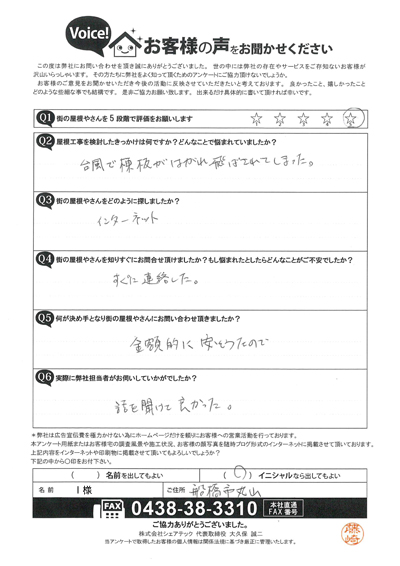 Voice!
お客様の声をお聞かせください
この度は弊社にお問い合わせを頂き誠にありがとうございました。世の中には弊社の存在やサービスをご存知ないお客様が
沢山いらっしゃいます。その方たちに弊社をよく知って頂くためのアンケートにご協力頂けないでしょうか。
お客様のご意見をお聞かせいただき今後の活動に反映させていただきたいと考えております。良かったこと、嬉しかったこと
どのような些細な事でも結構です。是非ご協力お願い致します。出来るだけ具体的に書いて頂ければ幸いです。
Q1 街の屋根やさんを5段階で評価をお願いします ☆ ☆ ☆ ☆ ☆
Q2 屋根工事を検討したきっかけは何ですか？どんなことで悩まれていましたか？
台風で棟板がはがれ飛ばされてしまった。
Q3 街の屋根やさんをどのように探しましたか？
インターネット
Q4 街の屋根やさんを知りすぐにお問合せ頂けましたか？もし悩まれたとしたらどんなことがご不安でしたか？
すぐに連絡した。
Q5 何が決め手となり街の屋根やさんにお問い合わせ頂きましたか？
金額的に安そうだったので
Q6 実際に弊社担当者がお伺いしていかがでしたか？
話を聞けて良かった。
＊弊社は広告宣伝費を極力かけない為にホームページだけを頼りにお客様への営業活動を行っております。
本アンケート用紙またはお客様宅の調査風景や施工状況、お客様の顔写真を随時ブログ形式のインターネットに掲載させて頂いております。
上記内容をインターネットや印刷物に掲載させて頂いてもよろしいでしょうか？
下記の中から〇印をお付下さい。
（　）名前を出してもよい （〇）イニシャルなら出してもよい
名前 I様 ご住所 船橋市丸山
FAX 0438-38-3310 本社直通 FAX番号
ご協力ありがとうございました。
株式会社シェアテック 代表取締役 大久保 誠二
当アンケートで取得したお客様の個人情報は関係法規に基づき厳正に管理いたします。